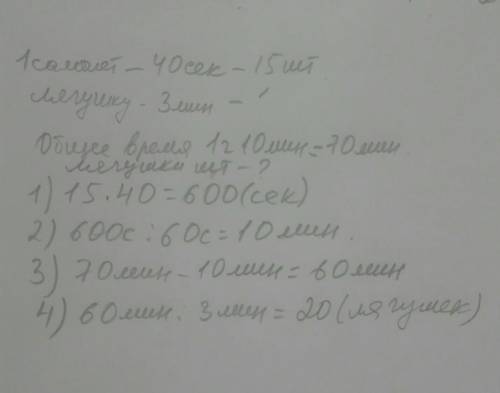 1 самолёт – 40сек – 15шт
лягушку - 3мин –
Общее время 1ч 10мин = 70мин
лягушки шт - ?
1) 15 · 40 = 600 (сек)
2) 600с : 60с = 10мин.
3) 70мин – 10мин = 60мин
4) 60мин : 3мин = 20 (лягушек)